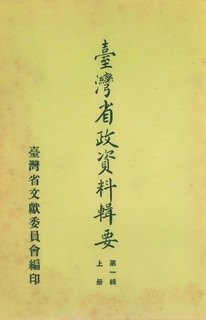 臺灣省政資料輯要
第一輯
上冊
臺灣省文獻委員會編印